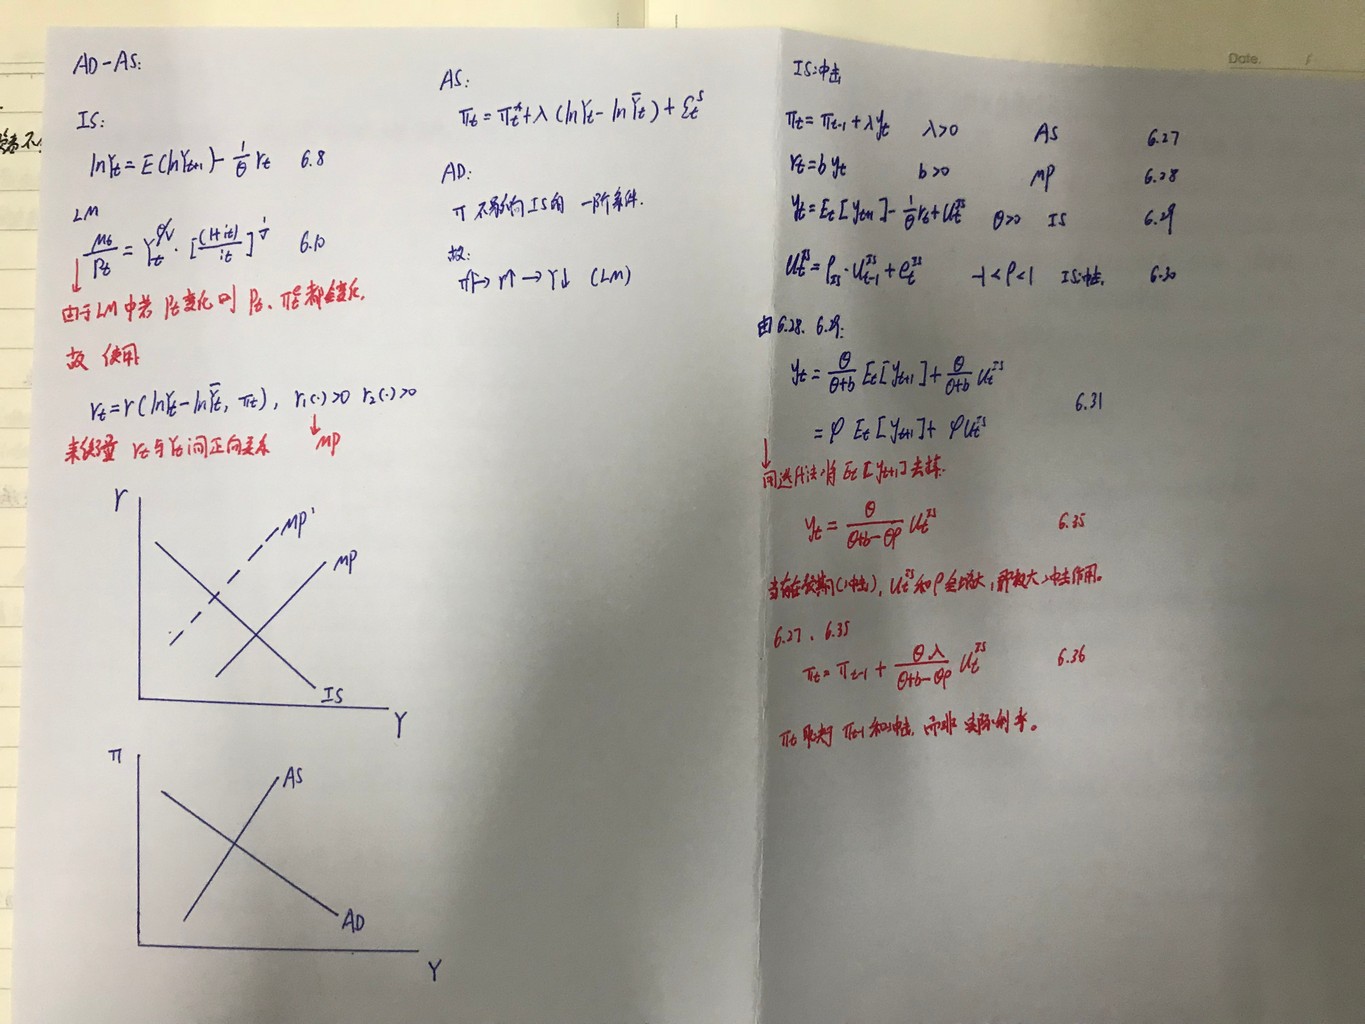 AD-AS:
IS:
lnYt = E(lnYt+1) - 1/θ rt 6.8
LM
Mt/Pt = Yt^θ/ν · [(1+it)/it]^1/ν 6.10
由于LM中若 Pt变化 则 Pt、πt^e都会变化.
故 使用
rt = r(lnYt - lnȲt, πt), r1(·)>0 r2(·)>0
来衡量 rt与Yt间正向关系 MP
r
MP'
MP
IS
Y
π
AS
AD
Y
AS:
πt = πt* + λ(lnYt - lnȲt) + εt^s
AD:
π 不影响IS的 一阶条件.
故:
π↑→ r↑ → Y↓ (LM)
Date.
IS冲击
πt = πt-1 + λyt λ>0 AS 6.27
rt = byt b>0 MP 6.28
yt = Et[yt+1] - 1/θ rt + ut^IS θ>0 IS 6.29
ut^IS = ρIS · ut-1^IS + et^IS -1<ρ<1 IS冲击. 6.30
由6.28、6.29:
yt = θ/(θ+b) Et[yt+1] + θ/(θ+b) ut^IS
= φ Et[yt+1] + φut^IS 6.31
用迭代法将 Et[yt+1]去掉.
yt = θ/(θ+b-θρ) ut^IS 6.35
当存在冲击), ut^IS和ρ会增大, 冲击作用。
6.27、6.35
πt = πt-1 + θλ/(θ+b-θρ) ut^IS 6.36
πt取决于 πt-1和冲击, 而非 实际利率。